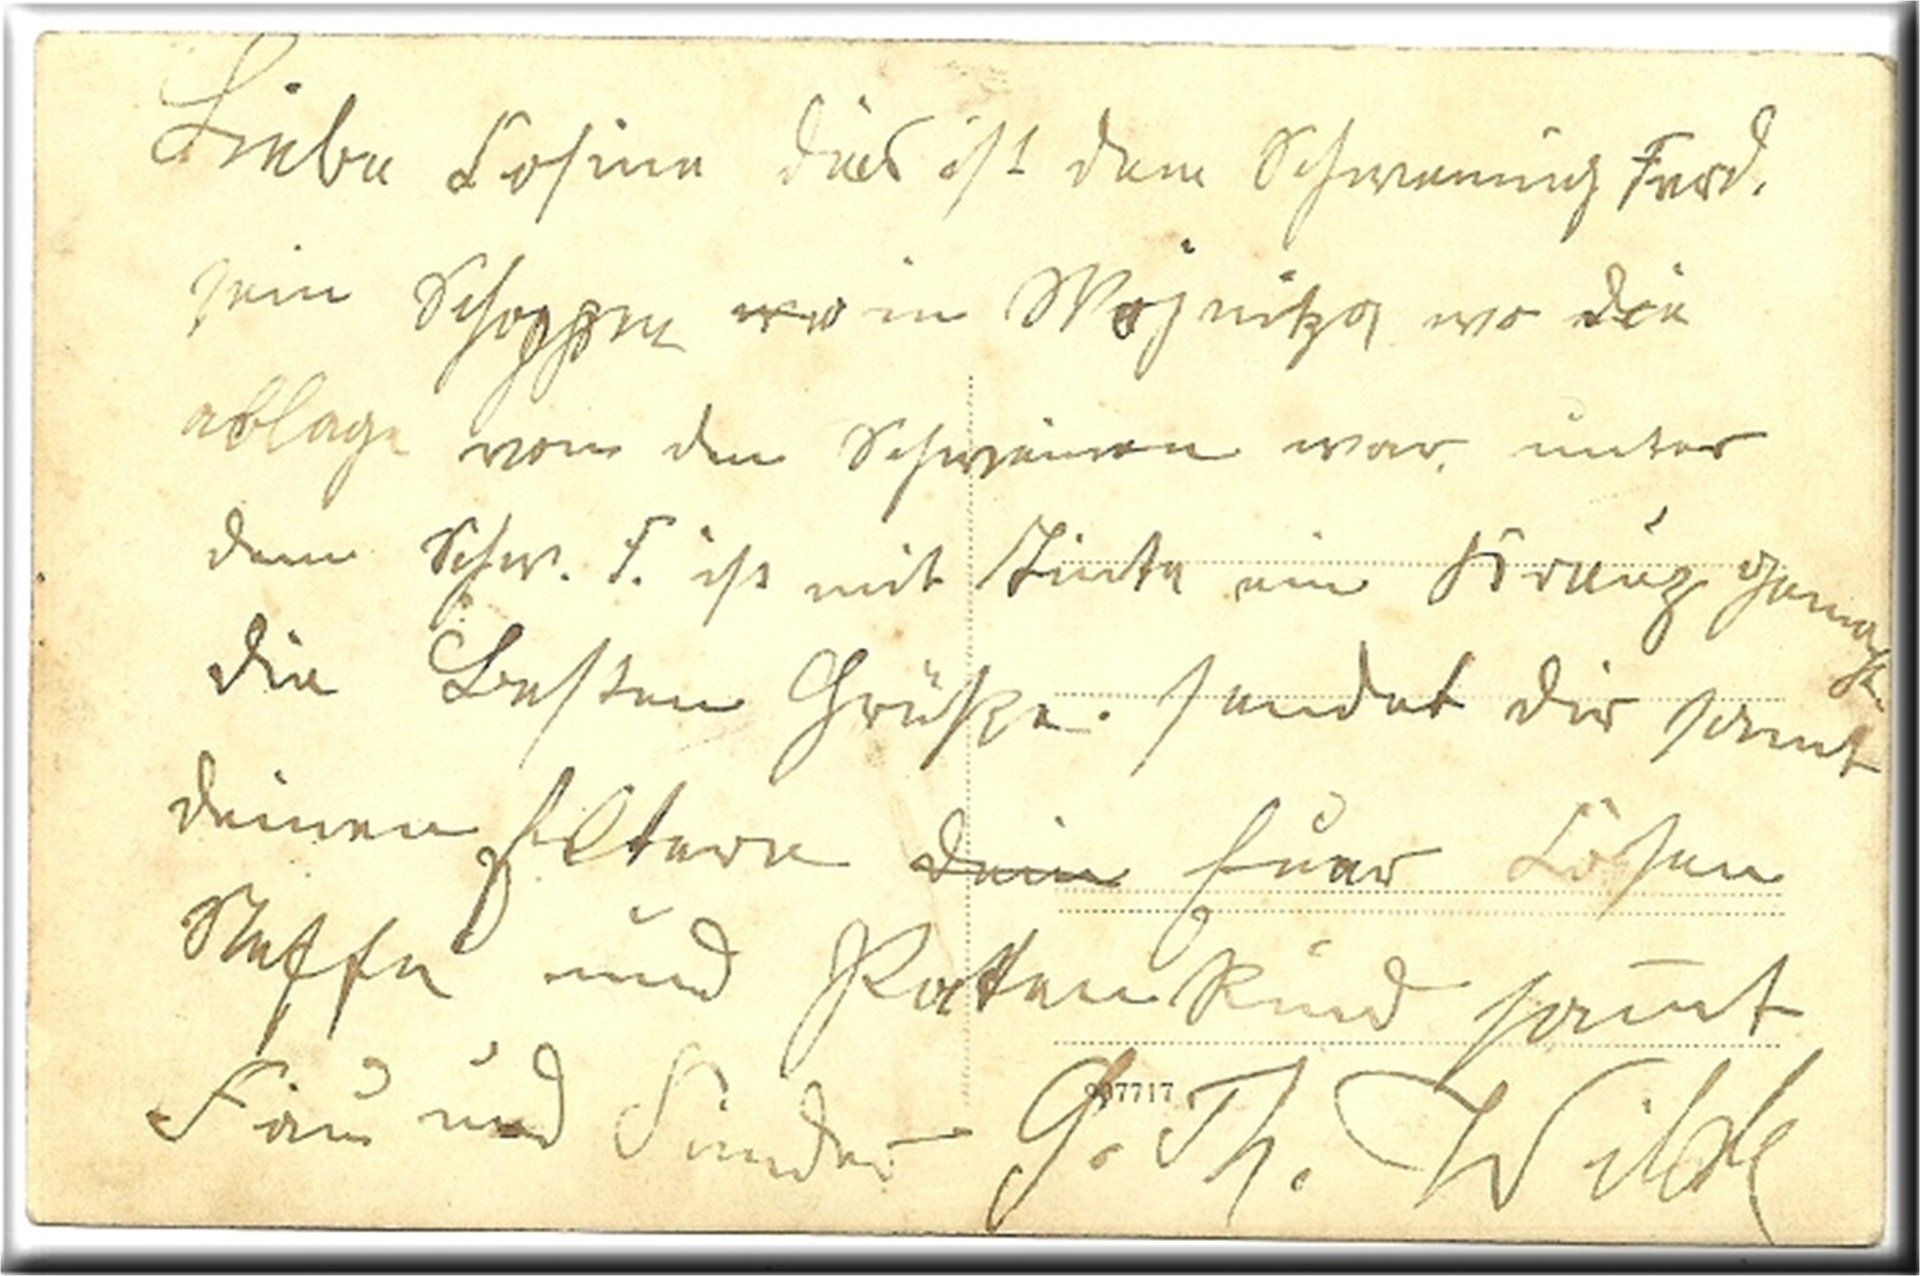 Liebe Rosina dies ist dem Schwenning Ferd.
sein Schoppen wo in Wojnitza wo die
ablage von den Schweinen war. unter
dem Schw. F. ist mit Tinte ein Kreuz gemacht.
die Besten Grüße. sendet dir samt
deinen Eltern dein Euer
Neffe und Patten Kind samt
Frau und Kinder G. Th. Wilde
907717